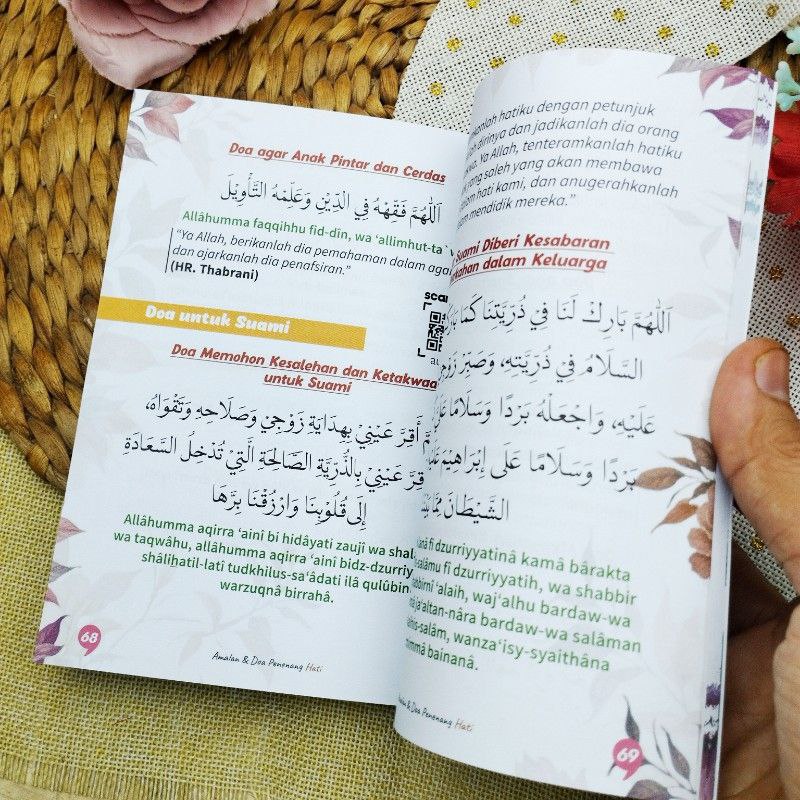 Doa agar Anak Pintar dan Cerdas
اَللّٰهُمَّ فَقِّهْهُ فِي الدِّيْنِ وَعَلِّمْهُ التَّأْوِيْلَ
Allâhumma faqqihhu fid-dîn, wa ‘allimhut-ta`
“Ya Allah, berikanlah dia pemahaman dalam aga
dan ajarkanlah dia penafsiran.”
(HR. Thabrani)
scan
Doa untuk Suami
Doa Memohon Kesalehan dan Ketakwaa
untuk Suami
أَقِرَّ عَيْنِيْ بِهِدَايَةِ زَوْجِيْ وَصَلَاحِهِ وَتَقْوَاهُ،
قِرَّ عَيْنِيْ بِالذُّرِّيَّةِ الصَّالِحَةِ الَّتِيْ تُدْخِلُ السَّعَادَةَ
إِلَى قُلُوْبِنَا وَارْزُقْنَا بِرَّهَا
Allâhumma aqirra ‘ainî bi hidâyati zaujî wa shal
wa taqwâhu, allâhumma aqirra ‘ainî bidz-dzurriy
shâliḫatil-latî tudkhilus-sa’âdati ilâ qulûbin
warzuqnâ birrahâ.
68
Amalan & Doa Penenang Hati
kanlah hatiku dengan petunjuk
dirinya dan jadikanlah dia orang
wa. Ya Allah, tenteramkanlah hatiku
rang saleh yang akan membawa
lam hati kami, dan anugerahkanlah
m mendidik mereka.”
Suami Diberi Kesabaran
rkahan dalam Keluarga
اَللّٰهُمَّ بَارِكْ لَنَا فِيْ ذُرِّيَّتِنَا كَمَا
السَّلَامُ فِي ذُرِّيَّتِهِ، وَصَبِّرْ
عَلَيْهِ، وَاجْعَلْهُ بَرْدًا وَسَلَامًا
بَرْدًا وَسَلَامًا عَلَى إِبْرَاهِيْمَ
الشَّيْطَانَ
anâ fî dzurriyyatinâ kamâ bârakta
-salâmu fî dzurriyyatih, wa shabbir
birnî ‘alaih, waj’alhu bardaw-wa
ja’altan-nâra bardaw-wa salâman
his-salâm, wanza’isy-syaithâna
mmâ bainanâ.
& Doa Penenang Hati
69